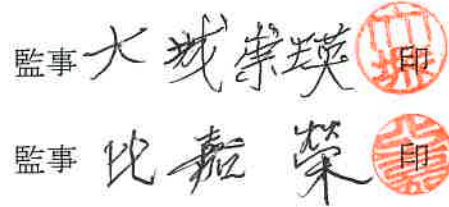 監事 大城崇瑛 印
監事 比嘉 榮 印